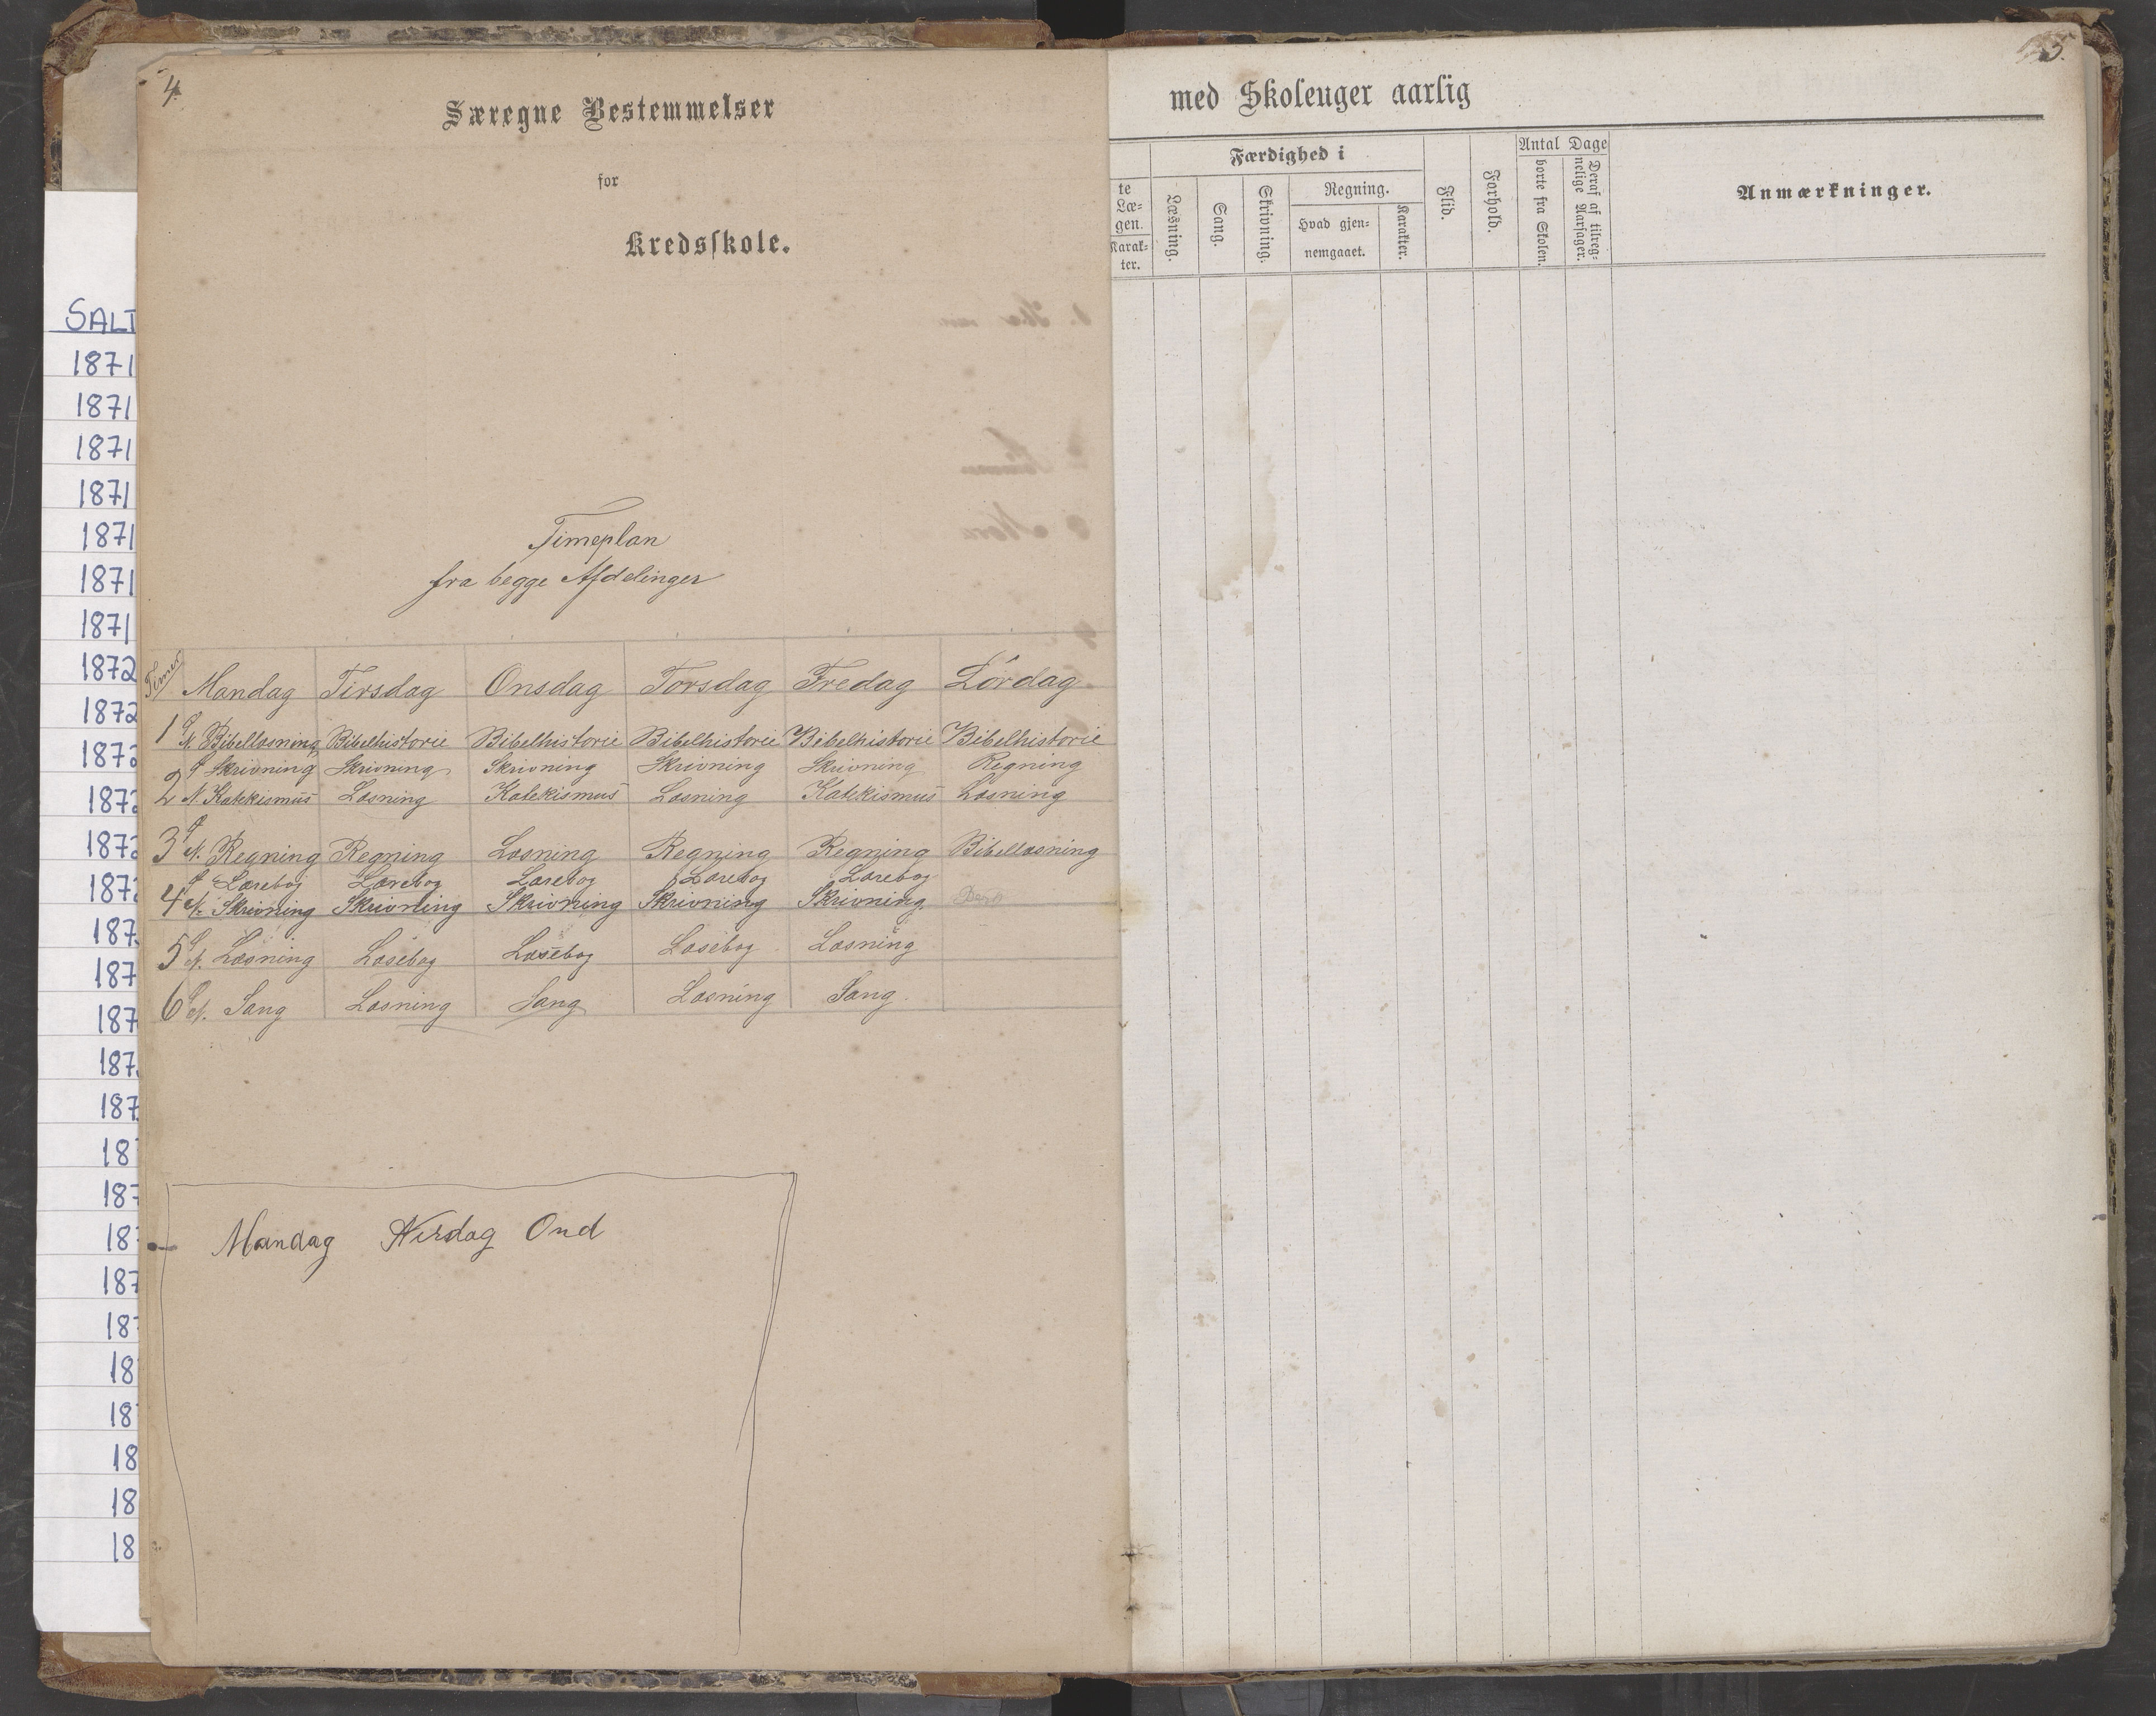 SALT
1871
1871
1871
1871
1871
1871
1871
1872
1872
1872
1872
1872
1872
187
187
187
187
187
18
187
18
187
187
18
18
18
18
18
4.
Særegne Bestemmelser
for
Kredsskole.
Timeplan
fra begge Afdelinger
Timer Mandag Tirsdag Onsdag Torsdag Fredag Lördag
1 N. Bibellæsning Bibelhistorie Bibelhistorie Bibelhistorie Bibelhistorie Bibelhistorie
Skrivning Skrivning Skrivning Skrivning Skrivning Regning
2 N. Katekismus Læsning Katekismus Læsning Katekismus Læsning
3 N. Regning Regning Læsning Regning Regning Bibellæsning
Læsebog Læsebog Læsebog Læsebog Læsebog
4 N. Skrivning Skrivning Skrivning Skrivning Skrivning
5 N. Læsning Læsebog Læsebog Læsebog Læsning
6 N. Sang Læsning Sang Læsning Sang
Mandag Tirsdag Ond
5.
med Skoleuger aarlig
te
Læ-
gen.
Karak-
ter.
Færdighed i
Læsning.
Sang.
Skrivning.
Regning.
Hvad gjen-
nemgaaet.
Karakter.
Flid.
Forhold.
Antal Dage
borte fra Skolen.
Deraf af tilreg-
nelige Aarsager.
Anmærkninger.